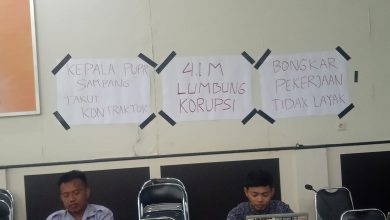 KEPALA PUPR
SAMPANG
TAKUT
KONTRAKTOR
4.1 M
LUMBUNG
KORUPSI
BONGKAR
PEKERJAAN
TIDAK LAYAK